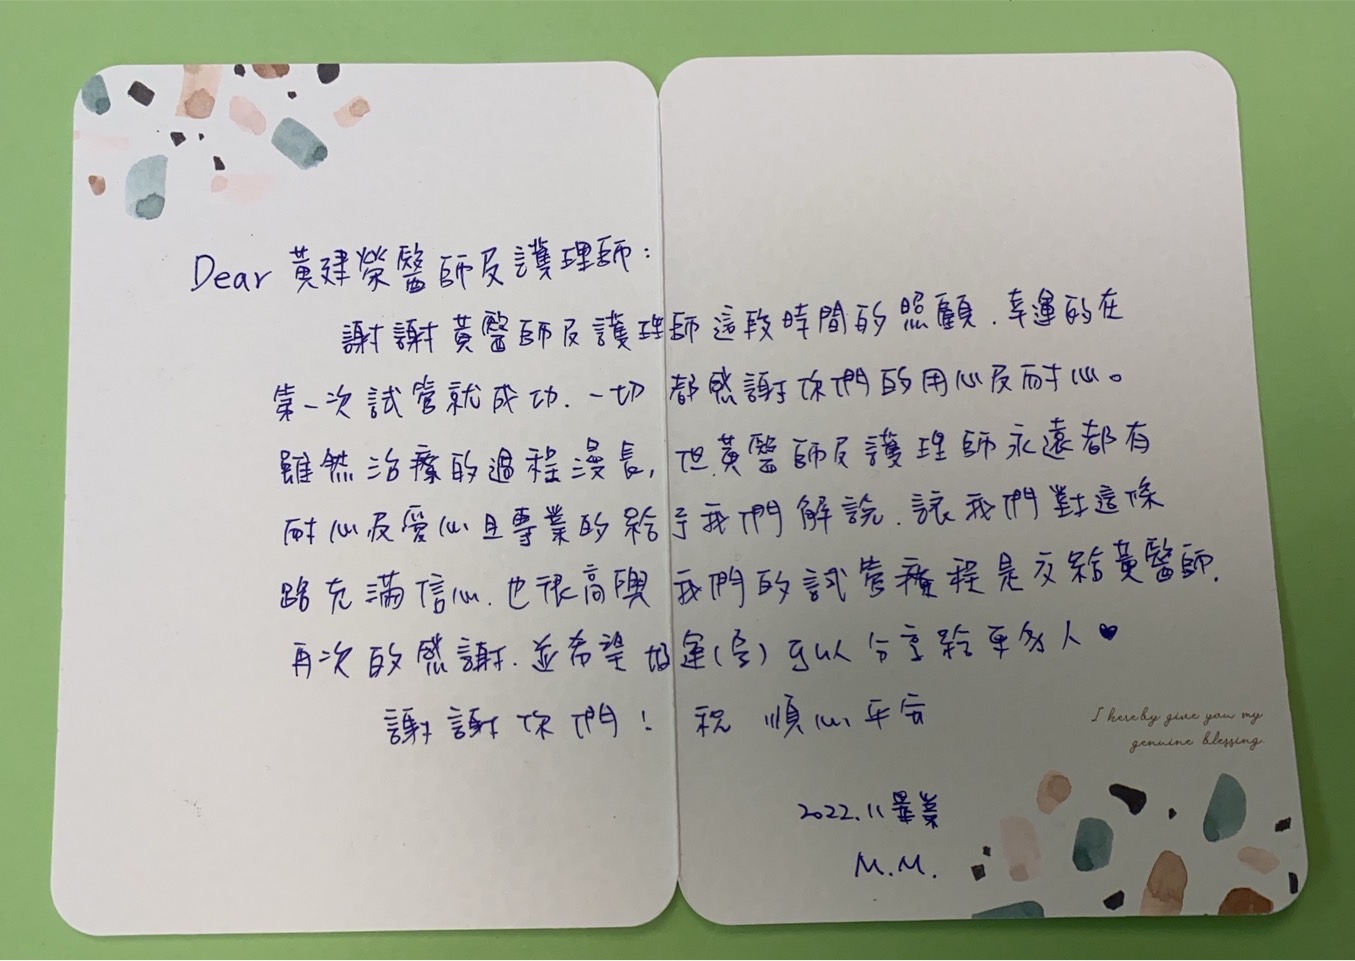 Dear 黃建榮醫師及護理師：
謝謝黃醫師及護理師這段時間的照顧．幸運的在
第一次試管就成功．一切都感謝你們的用心及耐心。
雖然治療的過程漫長，但黃醫師及護理師永遠都有
耐心及愛心且專業的給予我們解說．讓我們對這條
路充滿信心．也很高興我們的試管療程是交給黃醫師．
再次的感謝．並希望好運(孕)可以分享給更多人♥
謝謝你們！祝 順心平安
I hereby give you my
genuine blessing.
2022.11畢業
M.M.